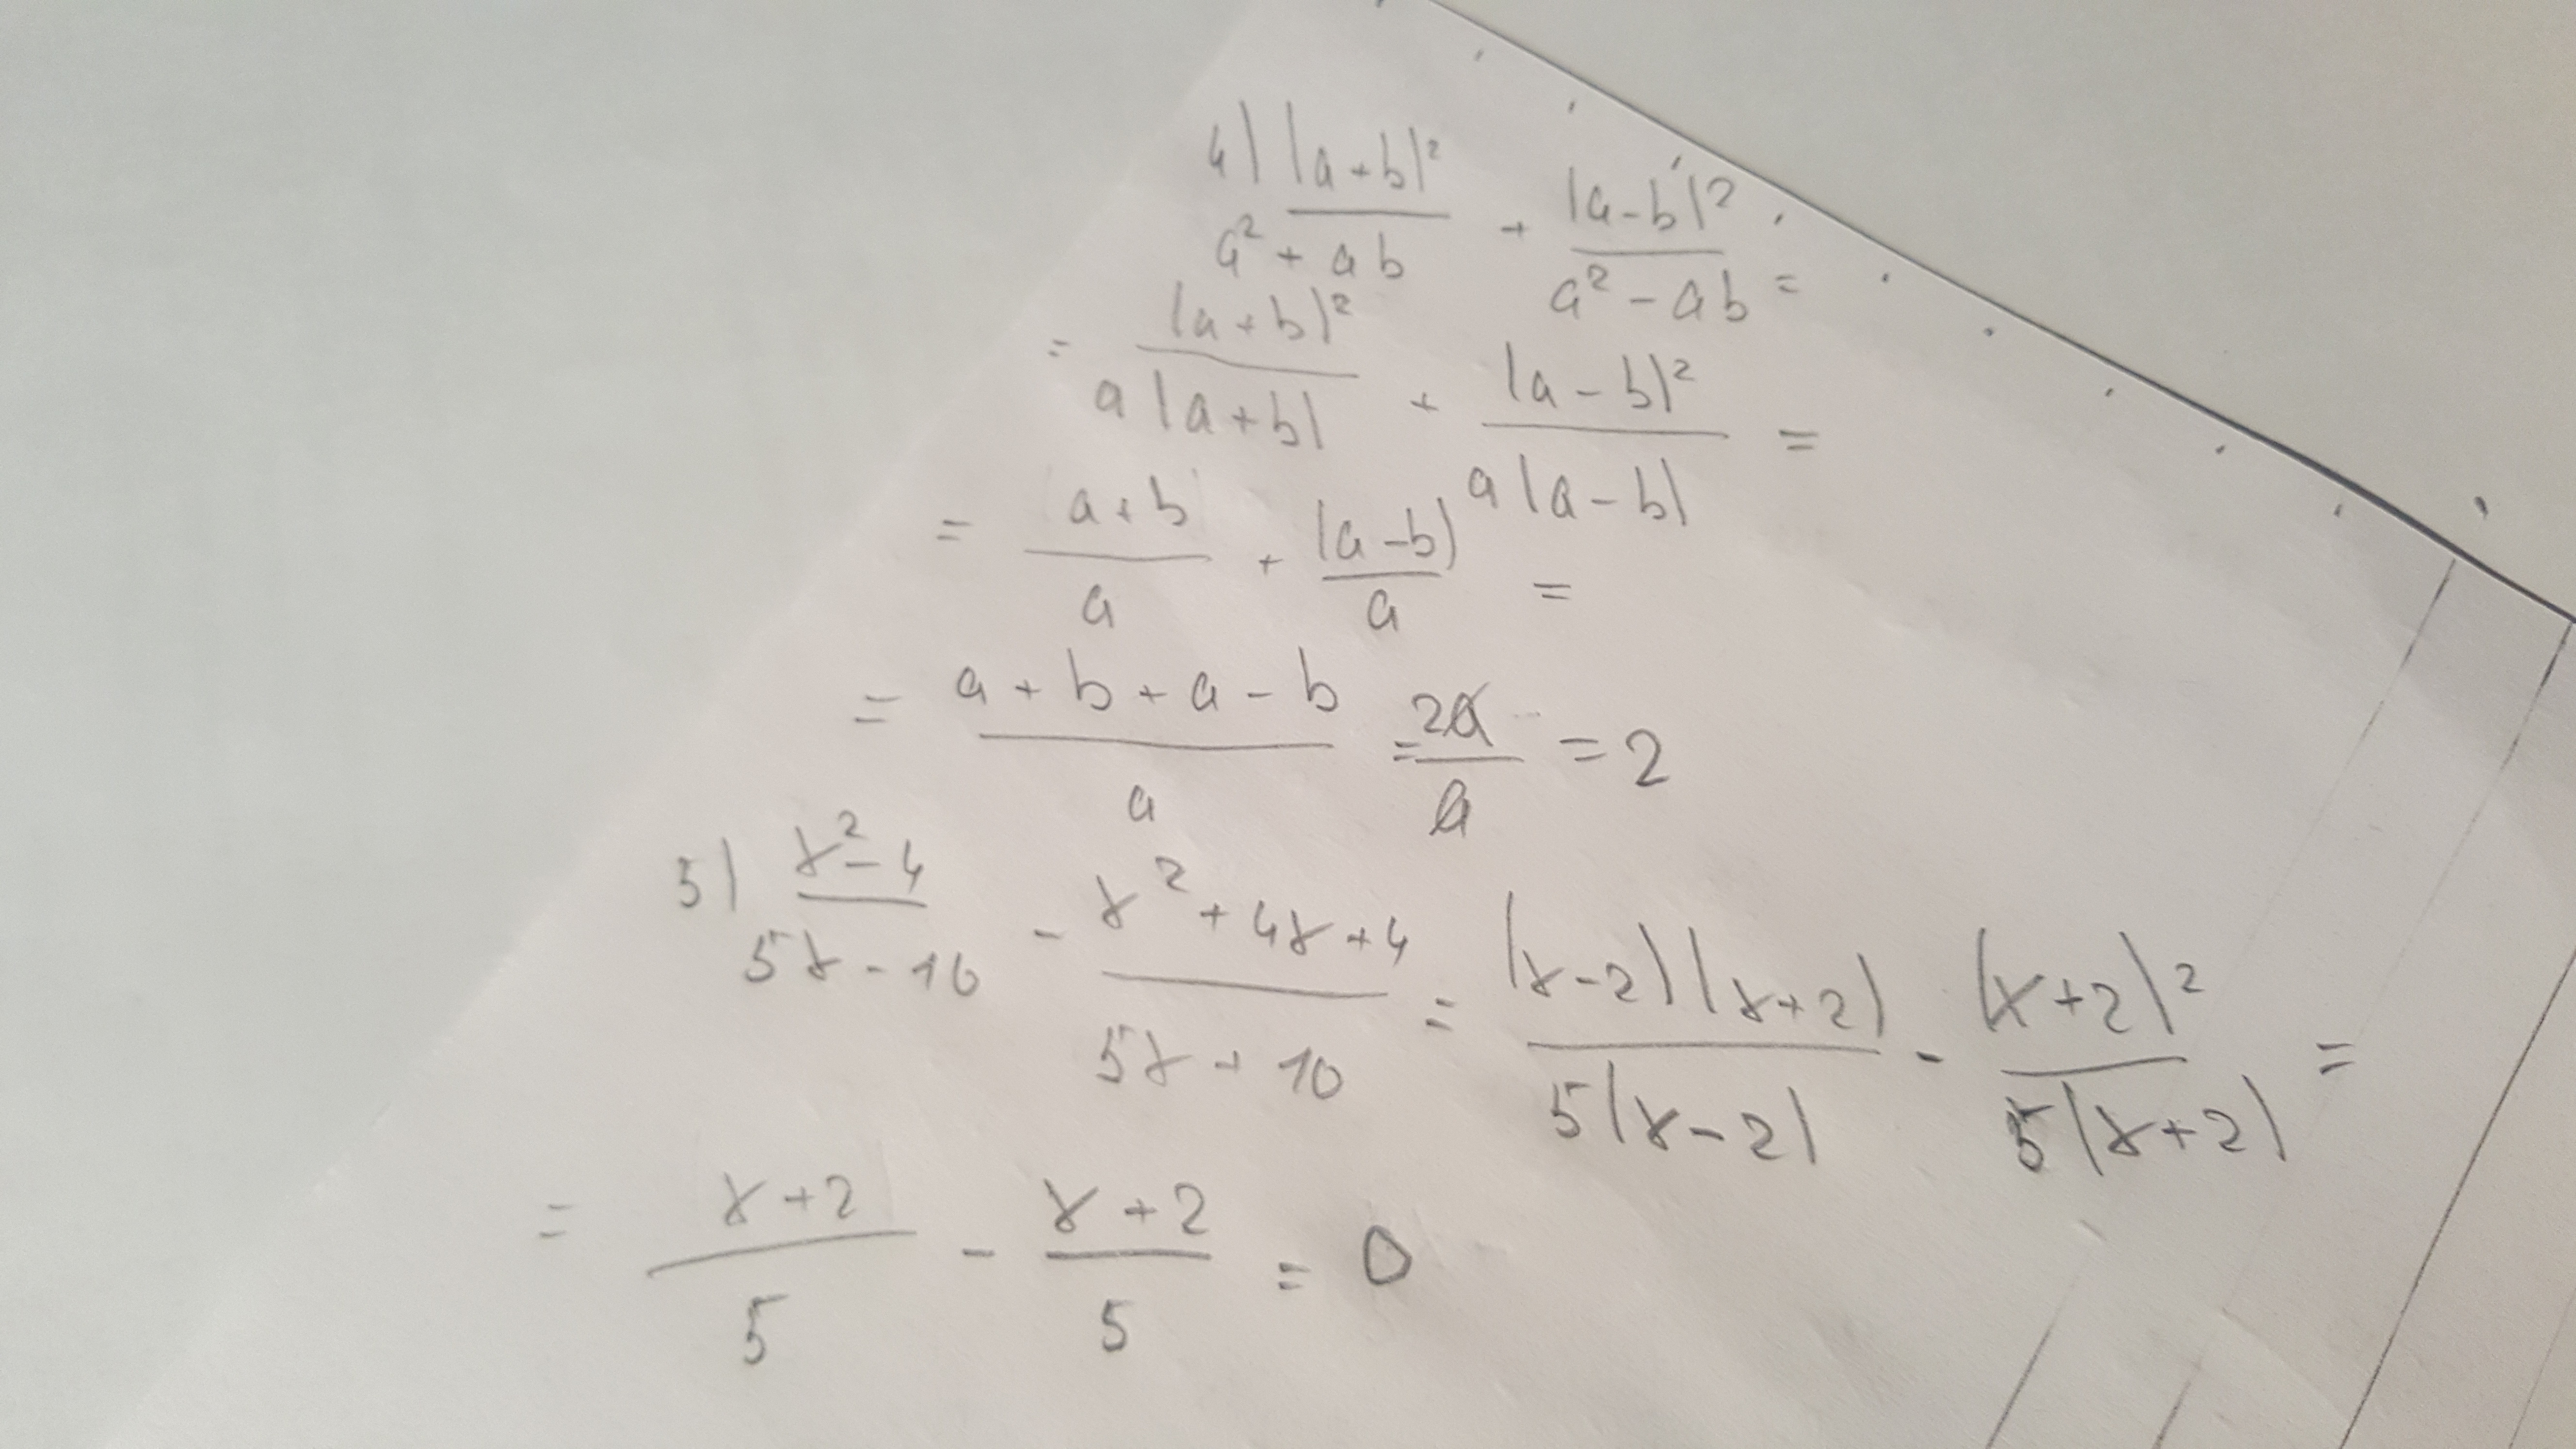 4) (a+b)² / (a² + ab) + (a-b)² / (a² - ab) =
= (a+b)² / a(a+b) + (a-b)² / a(a-b) =
= a+b / a + (a-b) / a =
= a+b+a-b / a = 2a / a = 2
5) x²-4 / 5x-10 - x²+4x+4 / 5x+10 = (x-2)(x+2) / 5(x-2) - (x+2)² / 5(x+2) =
= x+2 / 5 - x+2 / 5 = 0